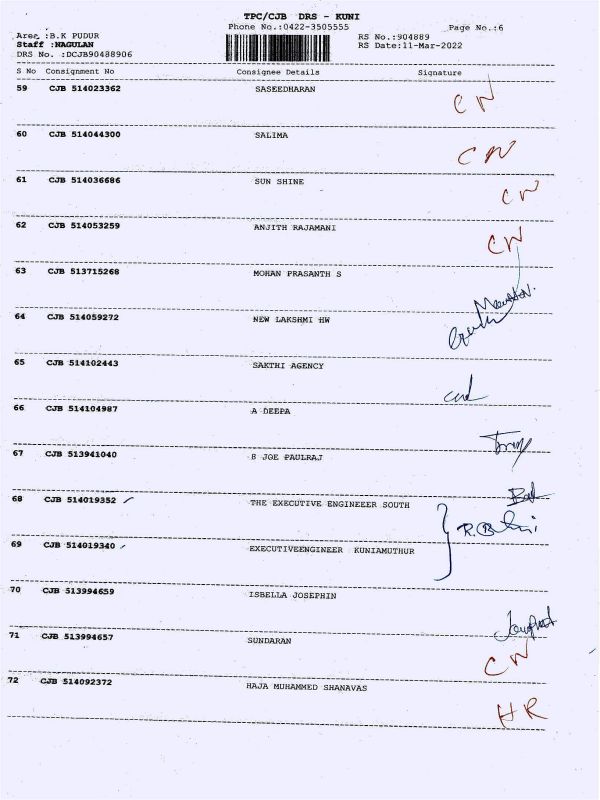 TPC/CJB DRS - KUNI
Phone No.:0422-3505555 Page No.:6
Area :B.K PUDUR RS No.:904889
Staff :NAGULAN RS Date:11-Mar-2022
DRS No. :DCJB90488906
S No Consignment No Consignee Details Signature
59 CJB 514023362 SASEEDHARAN CN
60 CJB 514044300 SALIMA CN
61 CJB 514036686 SUN SHINE CN
62 CJB 514053259 ANJITH RAJAMANI CN
63 CJB 513715268 MOHAN PRASANTH S
64 CJB 514059272 NEW LAKSHMI HW
65 CJB 514102443 SAKTHI AGENCY
66 CJB 514104987 A DEEPA
67 CJB 513941040 B JOE PAULRAJ
68 CJB 514019352 THE EXECUTIVE ENGINEEER SOUTH
69 CJB 514019340 EXECUTIVEENGINEER KUNIAMUTHUR
70 CJB 513994659 ISBELLA JOSEPHIN
71 CJB 513994657 SUNDARAN CN
72 CJB 514092372 HAJA MUHAMMED SHANAVAS HR